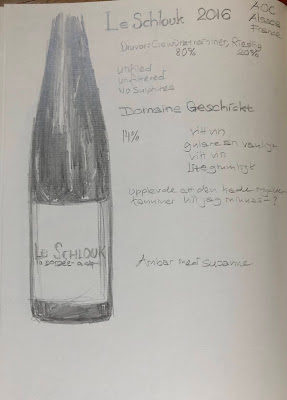 Le Schlouk 2016
AOC
Alsace
France
Druvor: Gewürztraminer, Riesling
80% 20%
unfined
unfiltered
No sulphites
Domaine Geschickt
14%
vitt vin
gulare än vanligt
vitt vin
Lite grumligt
Upplevde att den hade mycket
tanniner vill jag minnas?
LE SCHLOUK
Ambar med Suzanne